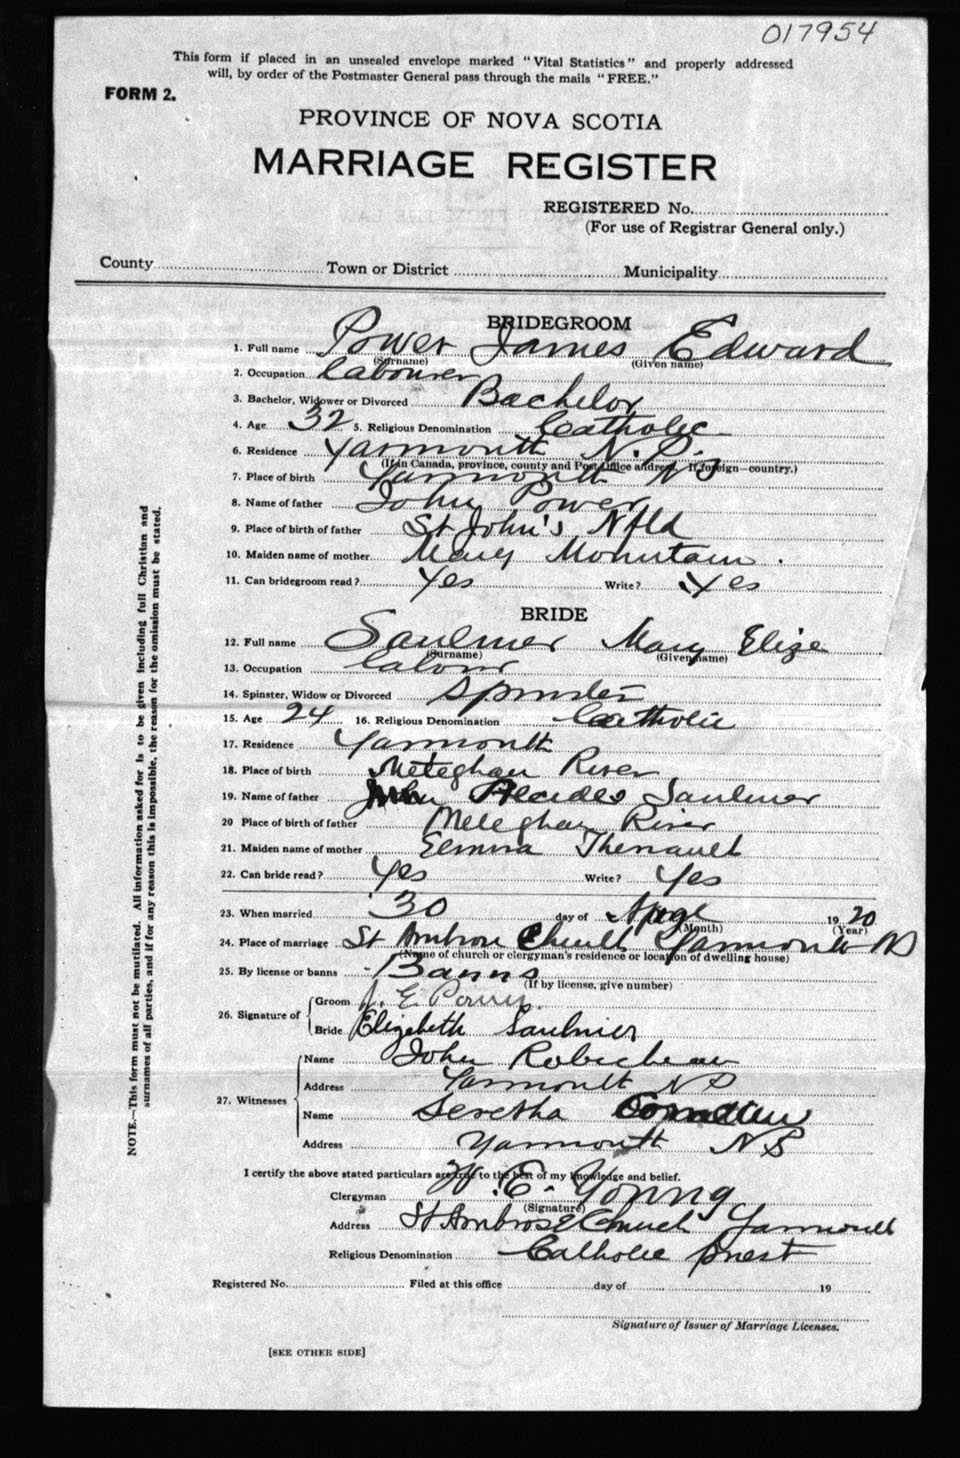 017954
This form if placed in an unsealed envelope marked "Vital Statistics" and properly addressed
will, by order of the Postmaster General pass through the mails "FREE."
FORM 2.
PROVINCE OF NOVA SCOTIA
MARRIAGE REGISTER
REGISTERED No.
(For use of Registrar General only.)
County Town or District Municipality
BRIDEGROOM
1. Full name Power James Edward
(Surname) (Given name)
2. Occupation labourer
3. Bachelor, Widower or Divorced Bachelor
4. Age 32 5. Religious Denomination Catholic
6. Residence Yarmouth N.S.
(If in Canada, province, county and Post Office address. If foreign—country.)
7. Place of birth Yarmouth NS
8. Name of father John Power
9. Place of birth of father St John's Nfld
10. Maiden name of mother Mary Mountain
11. Can bridegroom read? Yes Write? Yes
BRIDE
12. Full name Saulnier Mary Elize
(Surname) (Given name)
13. Occupation labour
14. Spinster, Widow or Divorced Spinster
15. Age 24 16. Religious Denomination Catholic
17. Residence Yarmouth
18. Place of birth Meteghan River
19. Name of father Alcides Saulnier
20 Place of birth of father Meteghan River
21. Maiden name of mother Elmira Theriault
22. Can bride read? Yes Write? Yes
23. When married 30 day of 1920
(Month) (Year)
24. Place of marriage St Ambrose Church Yarmouth NS
(Name of church or clergyman's residence or location of dwelling house)
25. By license or banns Banns
(If by license, give number)
26. Signature of
Groom J. E. Power
Bride Elizabeth Saulnier
27. Witnesses
Name John Robicheau
Address Yarmouth NS
Name Seretha
Address Yarmouth NS
I certify the above stated particulars are true to the best of my knowledge and belief.
Clergyman W. E. Young
(Signature)
Address St Ambrose Church Yarmouth
Religious Denomination Catholic priest
Registered No. Filed at this office day of 19
Signature of Issuer of Marriage Licenses.
[SEE OTHER SIDE]
NOTE.—This form must not be mutilated. All information asked for is to be given including full Christian and
surnames of all parties, and if for any reason this is impossible, the reason for the omission must be stated.